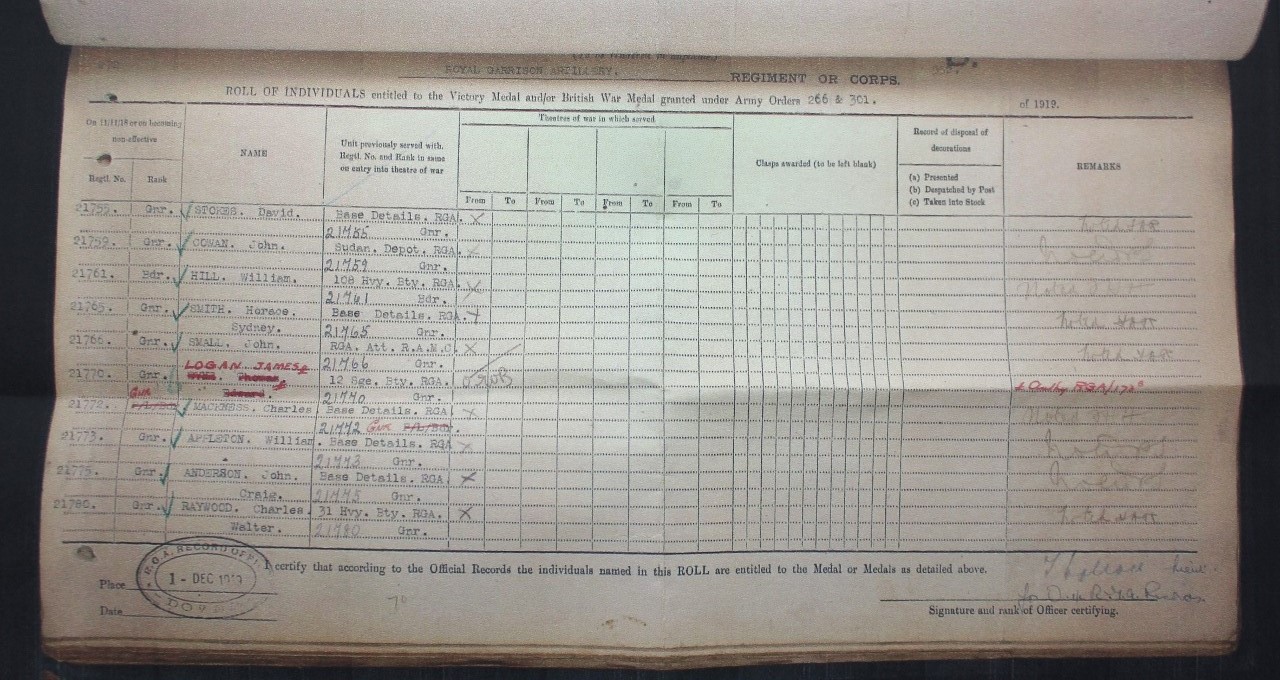 ROYAL GARRISON ARTILLERY. REGIMENT OR CORPS.
ROLL OF INDIVIDUALS entitled to the Victory Medal and/or British War Medal granted under Army Orders 266 & 301. of 1919.
On 11/11/18 or on becoming non-effective
Regtl. No. Rank
NAME
Unit previously served with. Regtl. No. and Rank in same on entry into theatre of war
Theatres of war in which served
From To From To From To From To
Clasps awarded (to be left blank)
Record of disposal of decorations
(a) Presented
(b) Despatched by Post
(c) Taken into Stock
REMARKS
21755. Gnr. STOKES. David. Base Details. RGA. X
21755 Gnr.
21759. Gnr. COWAN. John. Sudan. Depot. RGA. X
21759 Gnr.
21761. Bdr. HILL. William. 108 Hvy. Bty. RGA. X
21761 Bdr.
21765. Gnr. SMITH. Horace. Base Details. RGA. X
Sydney. 21765 Gnr.
21766. Gnr. SMALL. John. RGA. Att. R.A.M.C. X
LOGAN JAMES 21766 Gnr.
21770. Gnr. 12 Sge. Bty. RGA.
Gnr 21770 Gnr.
21772. MACKNESS. Charles Base Details. RGA X
21772 Gnr
21773. Gnr. APPLETON. William. Base Details. RGA X
21773 Gnr.
21775. Gnr. ANDERSON. John. Base Details. RGA X
Craig. 21775 Gnr.
21780. Gnr. RAYWOOD. Charles. 31 Hvy. Bty. RGA. X
Walter. 21780 Gnr.
I certify that according to the Official Records the individuals named in this ROLL are entitled to the Medal or Medals as detailed above.
R.G.A. RECORD OFFICE
1 - DEC 1919
DOVER
Place
Date
Signature and rank of Officer certifying.